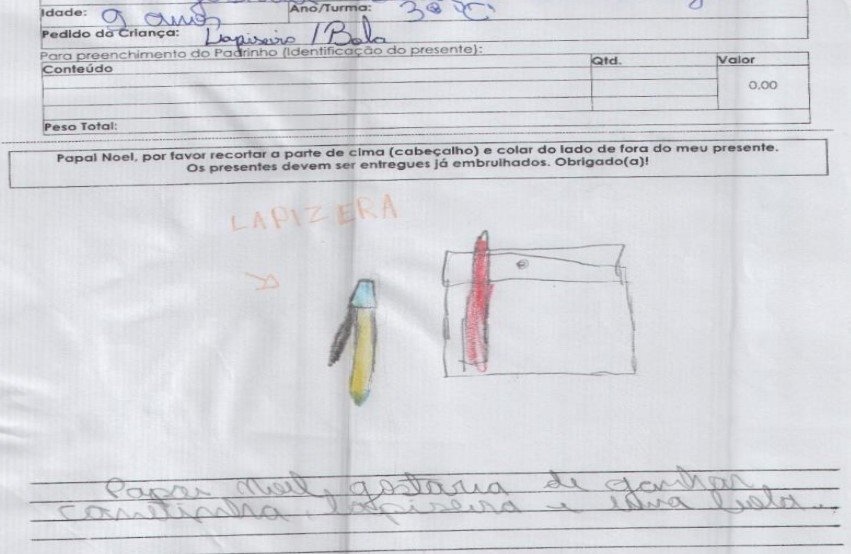 Idade: 9 anos Ano/Turma: 3º C
Pedido da Criança: Lapiseira / Bola
Para preenchimento do Padrinho (Identificação do presente):
Conteúdo Qtd. Valor
0,00
Peso Total:
Papai Noel, por favor recortar a parte de cima (cabeçalho) e colar do lado de fora do meu presente.
Os presentes devem ser entregues já embrulhados. Obrigado(a)!
LAPIZERA
Papai Noel, gostaria de ganhar
canetinha, lapiseira e uma bola.